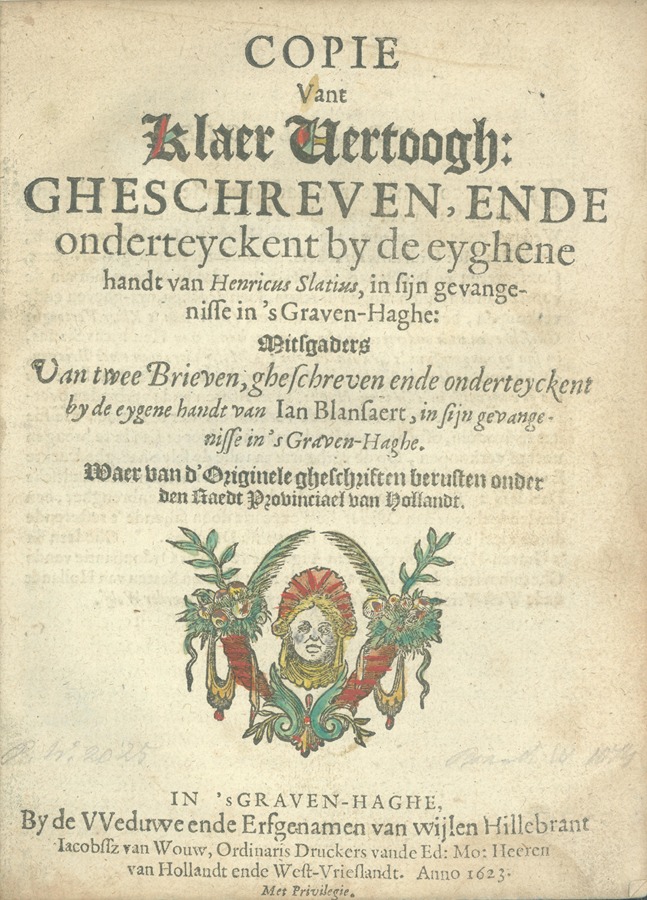 COPIE
Vant
Klaer Vertoogh:
GHESCHREVEN, ENDE
onderteyckent by de eyghene
handt van Henricus Slatius, in ſijn gevange-
niſſe in 's Graven-Haghe:
Mitſgaders
Van twee Brieven, gheſchreven ende onderteyckent
by de eygene handt van Ian Blanſaert, in ſijn gevange-
niſſe in 's Graven-Haghe.
Waer van d'Originele gheſchriften beruſten onder
den Raedt Provinciael van Hollandt.
IN 'sGRAVEN-HAGHE,
By de VVeduwe ende Erfgenamen van wijlen Hillebrant
Iacobſſz van Wouw, Ordinaris Druckers vande Ed: Mo: Heeren
van Hollandt ende Weſt-Vrieſlandt. Anno 1623.
Met Privilegie.